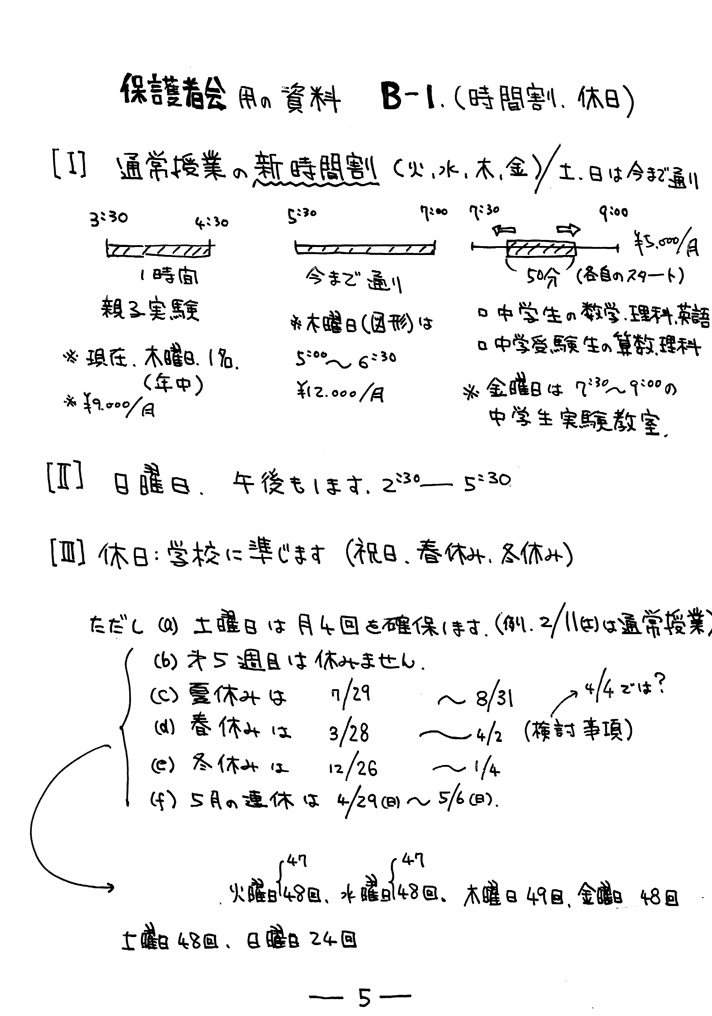 保護者会用の資料 B-1.(時間割.休日)
[I] 通常授業の新時間割(火,水,木,金)/土.日は今まで通り
3:30 4:30 5:30 7:00 7:30 9:00
¥5,000/月
1時間 今まで通り 50分 (各自のスタート)
親子実験 ※木曜日(図形)は □中学生の数学.理科.英語
※現在.木曜日.1名. 5:00〜6:30 □中学受験生の算数.理科
(年中) ¥12.000/月 ※金曜日は 7:30〜9:00の
※¥9.000/月 中学生実験教室.
[II] 日曜日. 午後もします. 2:30―5:30
[III] 休日:学校に準じます(祝日.春休み.冬休み)
ただし (a) 土曜日は月4回を確保します.(例.2/11(土)は通常授業)
(b) 才5週目は休みません.
(c) 夏休みは 7/29 〜 8/31 4/4では?
(d) 春休みは 3/28 〜 4/2 (検討事項)
(e) 冬休みは 12/26 〜 1/4
(f) 5月の連休は 4/29(日)〜5/6(日).
47 47
火曜日48回、水曜日48回。木曜日49回、金曜日 48回
土曜日48回、日曜日24回
― 5 ―